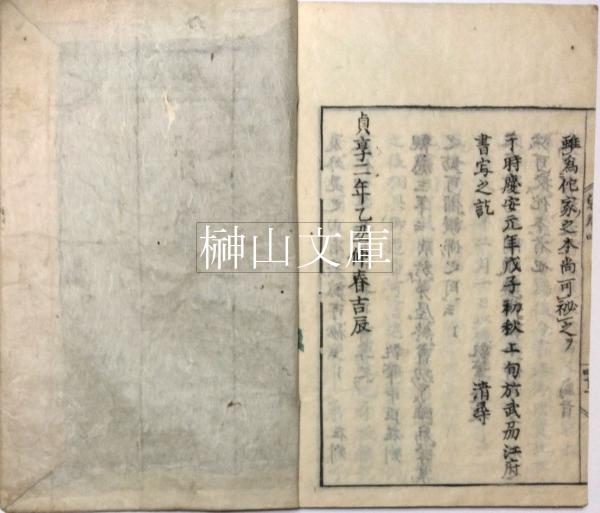 雖為佗家之本尚可祕之ヲ
于時慶安元年戊子初秋上旬於武刕江府
書写之訖　清尋
貞享二年乙丑 春吉辰
榊山文庫